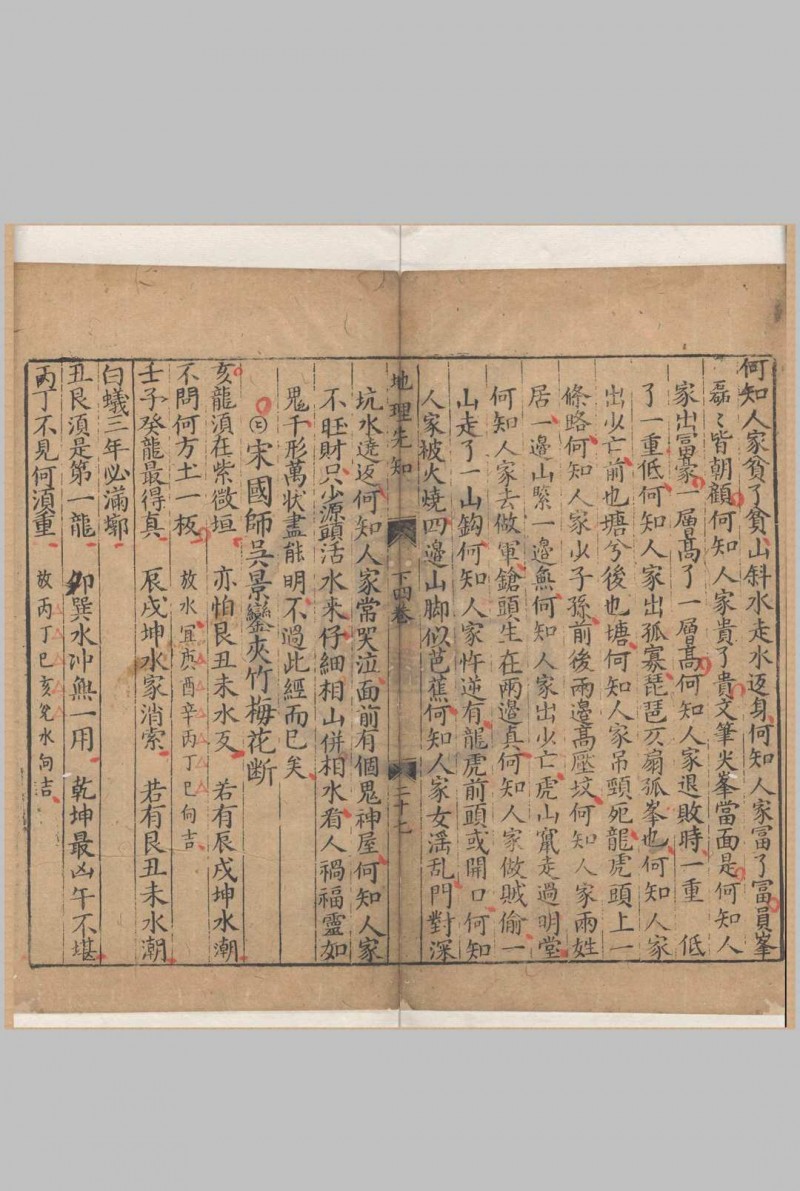 何知人家貧了貧山斜水走水返身何知人家富了富員峯
磊〻皆朝顧何知人家貴了貴文筆尖峯當面是何知人
家出富豪一層髙了一層髙何知人家退敗時一重低
了一重低何知人家出孤寡琵琶仄扇孤峯也何知人家
出少亡前也塘兮後也塘何知人家吊頸死龍虎頭上一
條路何知人家少子孫前後兩邊髙壓坟何知人家兩姓
居一邊山緊一邊無何知人家出少亡虎山竄走過明堂
何知人家去做軍鎗頭生在兩邊真何知人家做賊偷一
山走了一山鈎何知人家忤逆有龍虎前頭或開口何知
人家被火燒四邊山脚似芭蕉何知人家女滛乱門對深
地理先知 下四卷 二十七
坑水遶返何知人家常哭泣面前有個鬼神屋何知人家
不旺財只少源頭活水来仔細相山併相水看人禍福靈如
鬼千形萬状盡能明不過此經而已矣
宋國師吳景鸞夾竹梅花断
亥龍湏在紫微垣 亦怕艮丑未水叉 若有辰戌坤水潮
不問何方土一板 故水宜庚酉辛丙丁巳向吉
壬子癸龍最得真 辰戌坤水家消索 若有艮丑未水潮
白蟻三年必滿槨
丑艮湏是第一龍 卯巽水冲無一用 乾坤最凶午不堪
丙丁不見何湏重 故丙丁巳亥兌水向吉